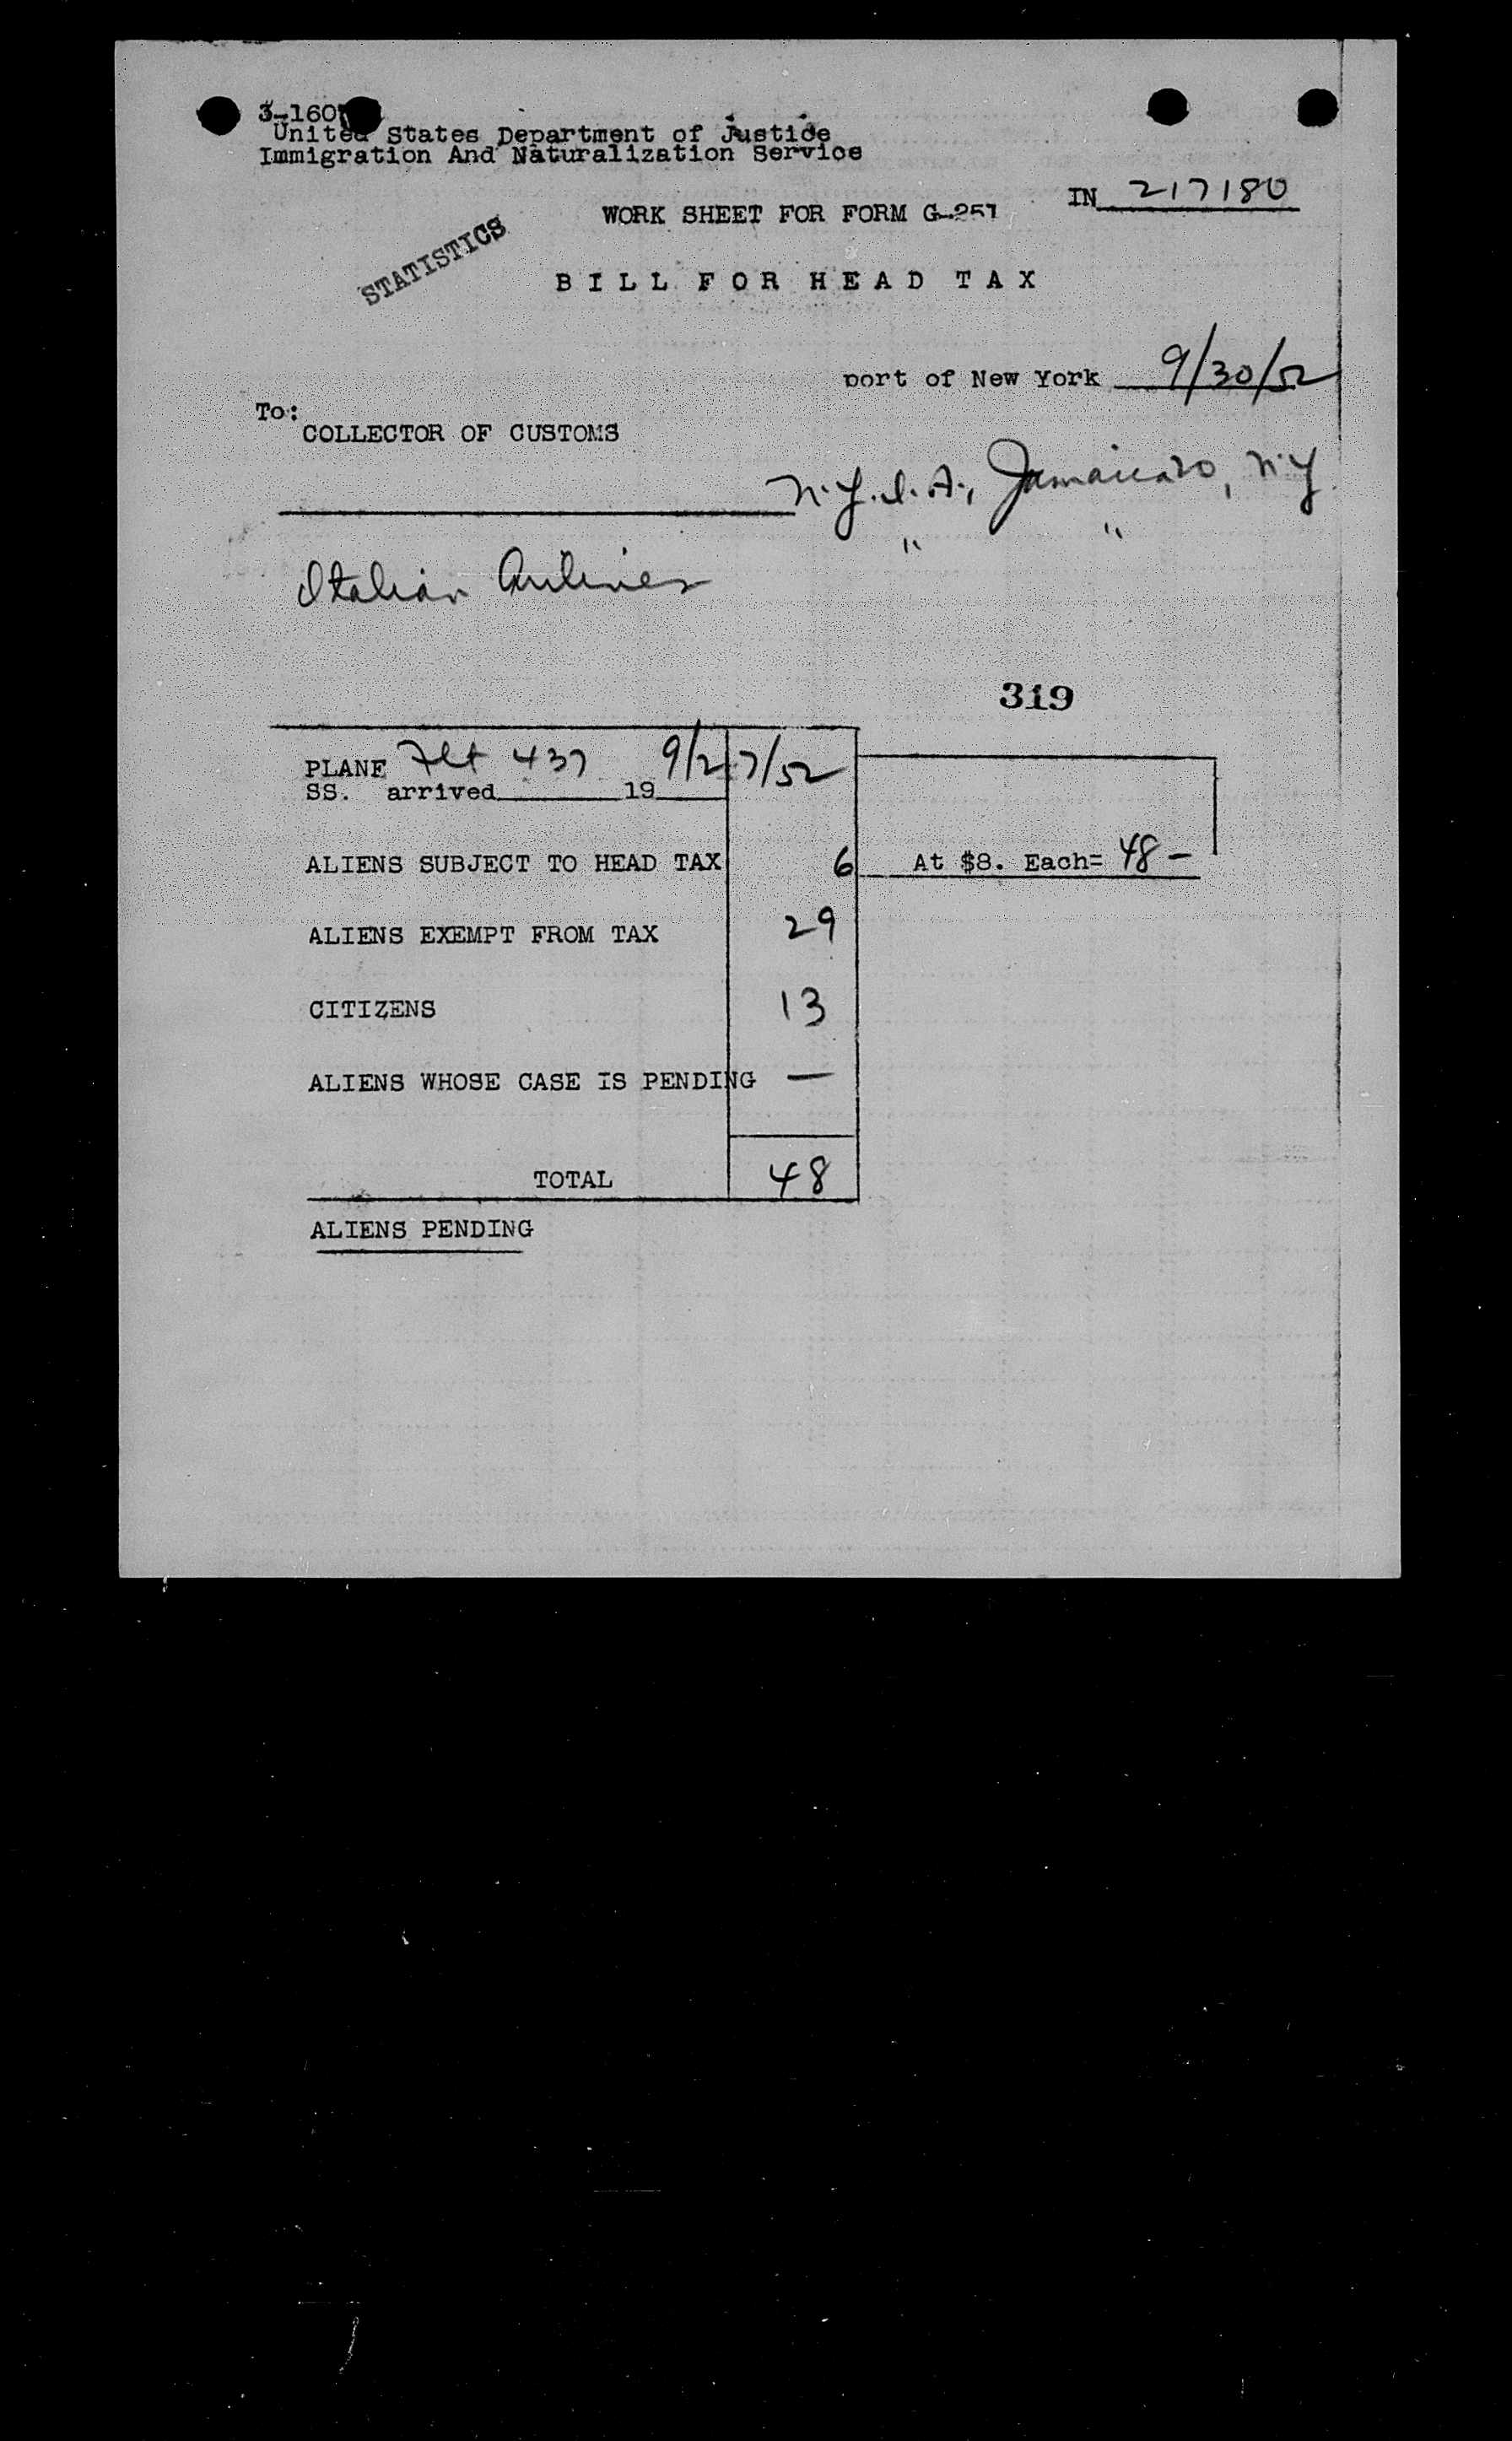 3-160
United States Department of Justice
Immigration And Naturalization Service
IN 217180
WORK SHEET FOR FORM G-251
STATISTICS
BILL FOR HEAD TAX
port of New York 9/30/52
To:
COLLECTOR OF CUSTOMS
N.Y.I.A., Jamaica 30, N.Y.
" "
Italian Airlines
319
PLANE Flt 437 9/27/52
SS. arrived 19
ALIENS SUBJECT TO HEAD TAX 6 At $8. Each= 48 –
ALIENS EXEMPT FROM TAX 29
CITIZENS 13
ALIENS WHOSE CASE IS PENDING —
TOTAL 48
ALIENS PENDING